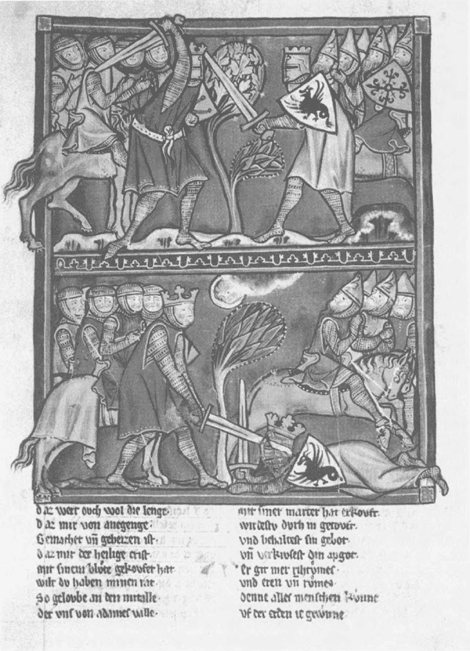 daz wert ouch wol die lenge.
daz mir von anegenge
Gemachet vñ geheizen ist
daz mir der heilige crist
mit sinem blůte gekoufet hat
wilt du haben minen rat
So geloube an den mitalle
der vns von adames valle
mit siner marter hat
wirdestv dvrch in
vnd behaltest sin gebot
vñ verkivsest din apgot
Er git mer
vnd eren vñ
denne alles menschen kunne
vf der erden ie gewunne